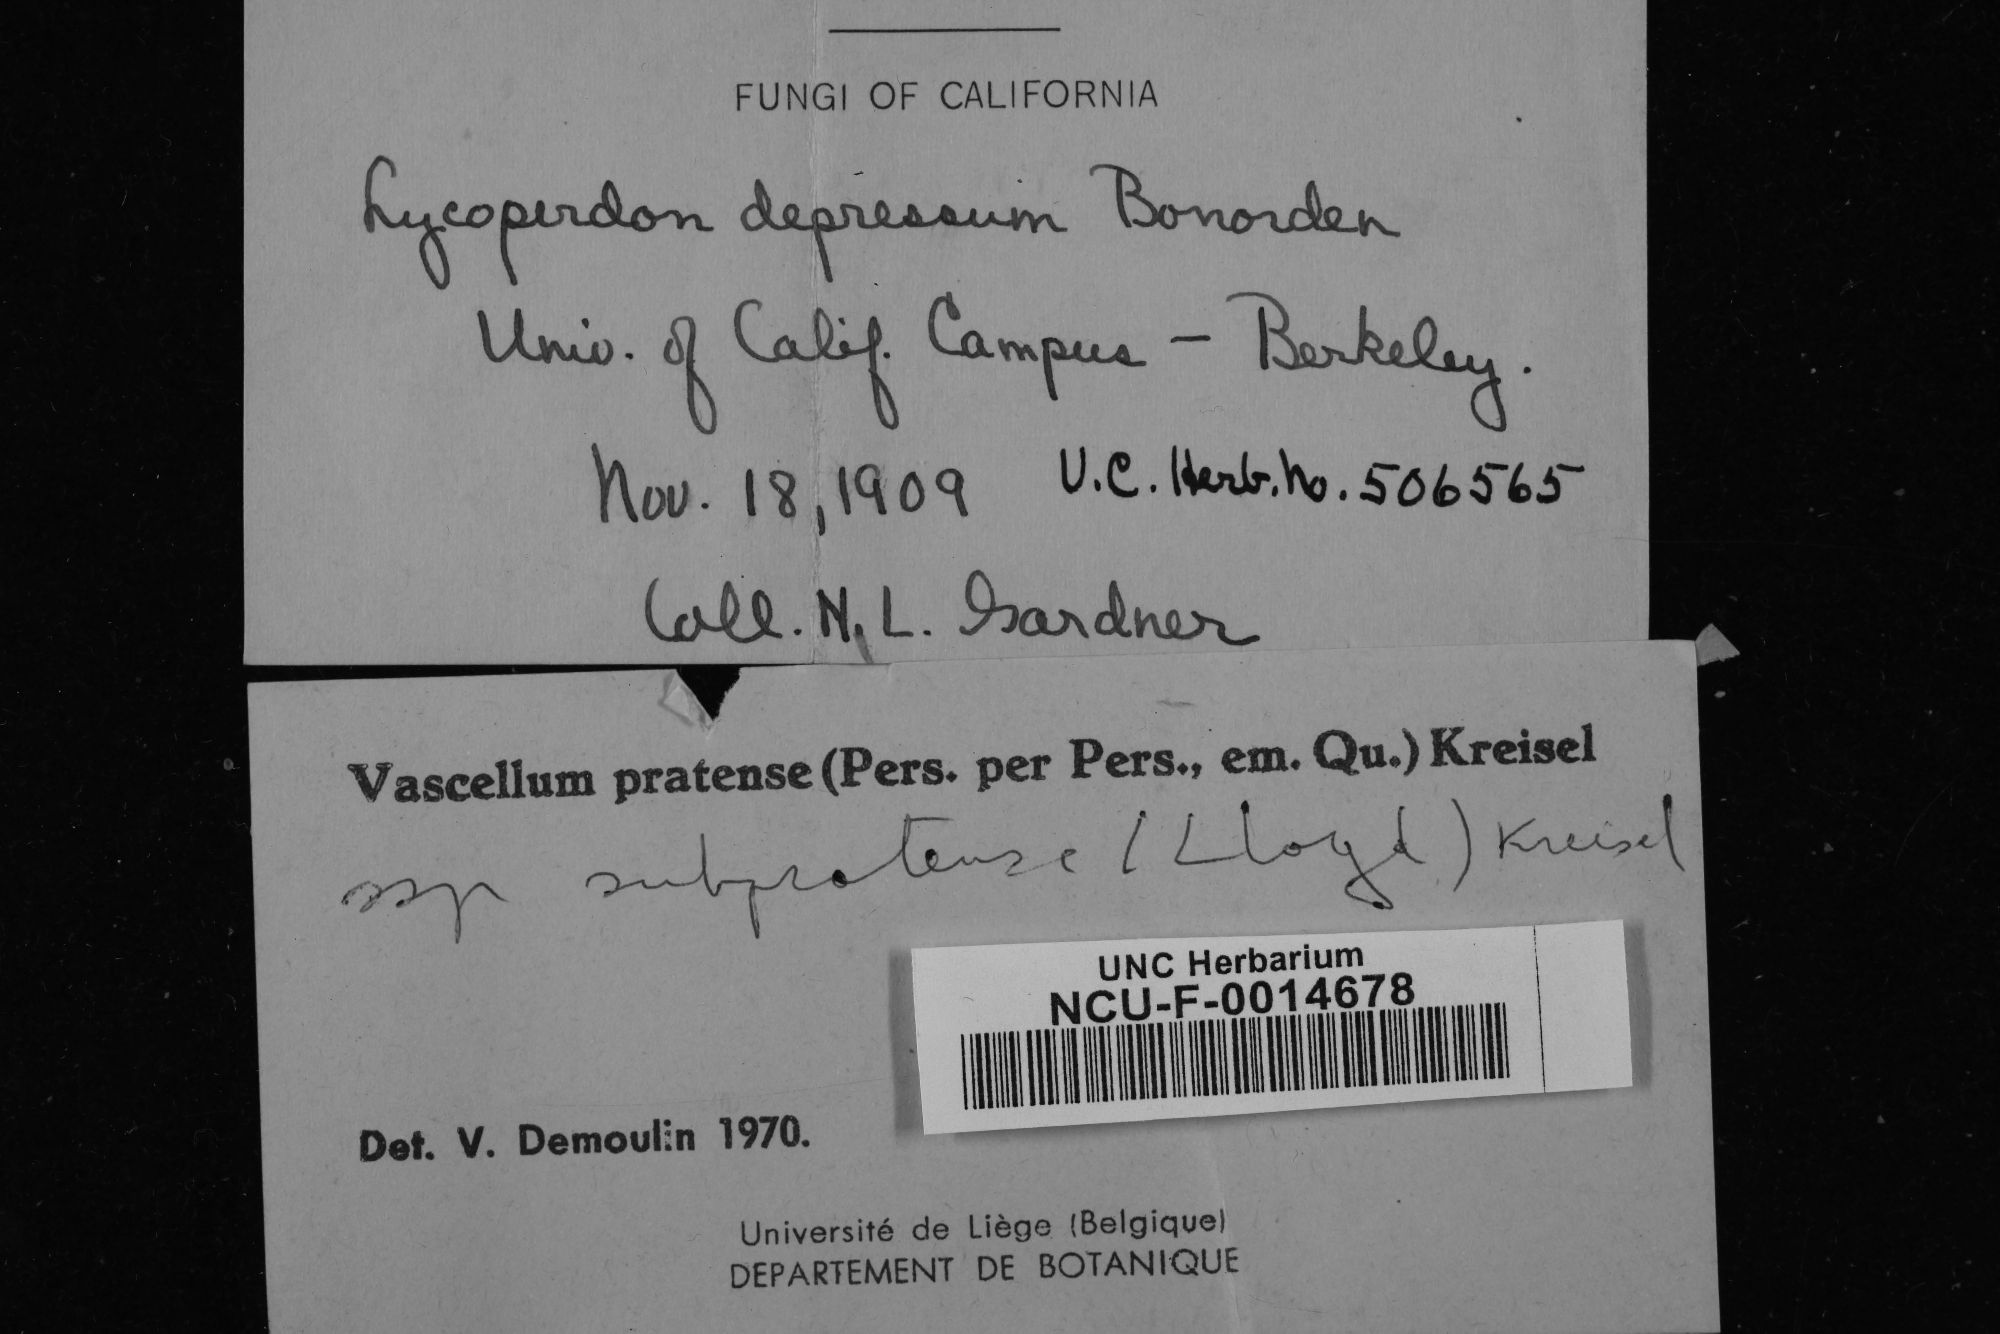 FUNGI OF CALIFORNIA
Lycoperdon depressum Bonorden
Univ. of Calif. Campus – Berkeley.
Nov. 18, 1909 U.C. Herb. No. 506565
Coll. N. L. Gardner
Vascellum pratense (Pers. per Pers., em. Qu.) Kreisel
ssp subpratense (Lloyd) Kreisel
UNC Herbarium
NCU-F-0014678
Det. V. Demoulin 1970.
Université de Liège (Belgique)
DEPARTEMENT DE BOTANIQUE